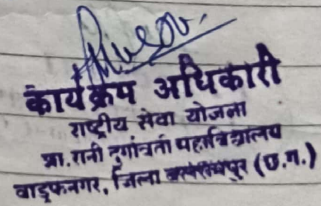 कार्यक्रम अधिकारी
राष्ट्रीय सेवा योजना
प्रा. रानी दुर्गावती महाविद्यालय
वाड्रफनगर, जिला बलरामपुर (छ.ग.)